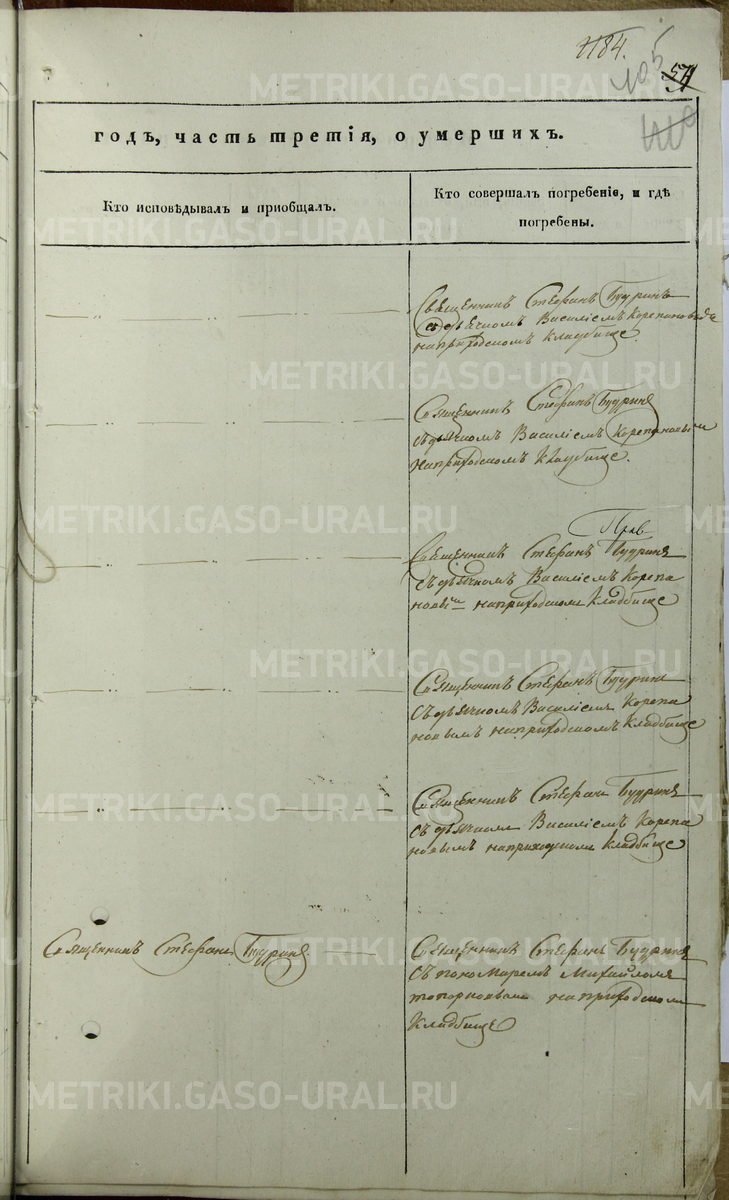 1184.
105
54
METRIKI.GASO-URAL.RU
годъ, часть третія, о умершихъ.
Кто исповѣдывалъ и пріобщалъ.
Кто совершалъ погребеніе, и гдѣ
погребены.
Священникъ Стефанъ Будринъ
съ дьячкомъ Василіемъ Корепановымъ
на приходскомъ кладбище.
Священникъ Стефанъ Будринъ
съ дьячкомъ Василіемъ Корепановымъ
на приходскомъ кладбище.
Прав
Священникъ Стефанъ Будринъ
съ дьячкомъ Василіемъ Корепа
новымъ на приходскомъ кладбище
Священникъ Стефанъ Будринъ
съ дьячкомъ Василіемъ Корепа
новымъ на приходскомъ кладбище
Священникъ Стефанъ Будринъ
съ дьячкомъ Василіемъ Корепа
новымъ на приходскомъ кладбище
Священникъ Стефанъ Будринъ.
Священникъ Стефанъ Будринъ
съ пономаремъ Михайломъ
Топорковымъ на приходскомъ
кладбище